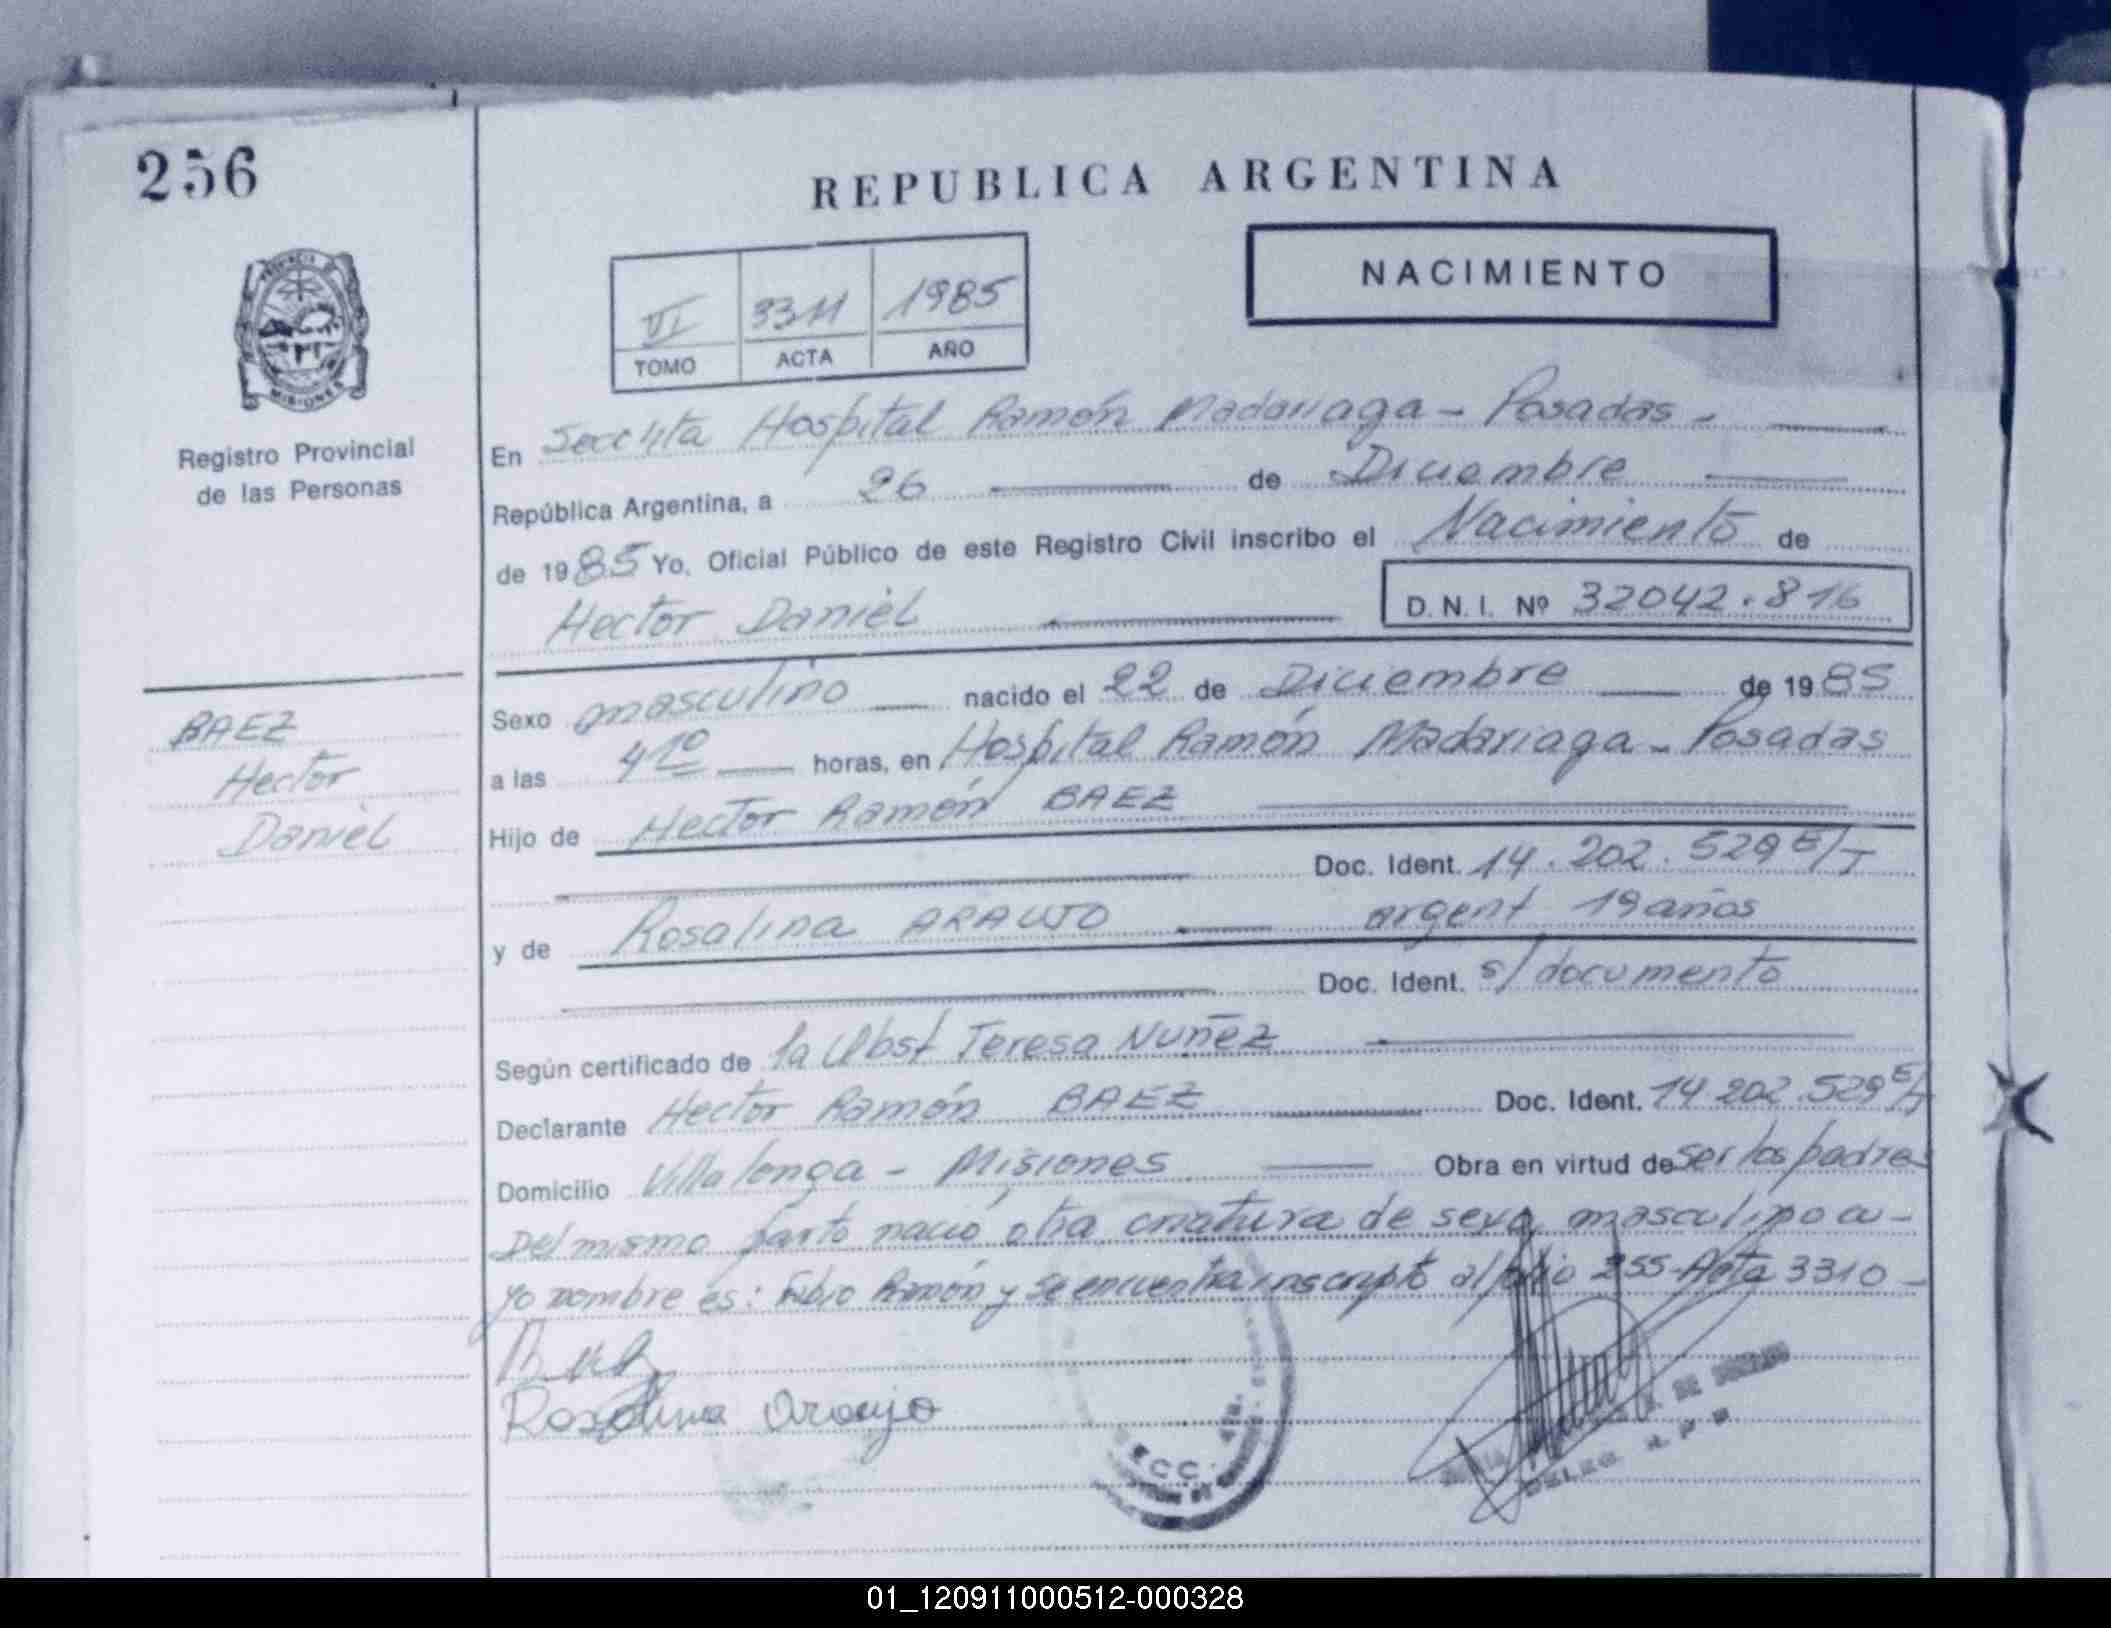 256
REPUBLICA ARGENTINA
NACIMIENTO
VI 3311 1985
TOMO ACTA AÑO
PROVINCIA DE
MISIONES
Registro Provincial
de las Personas
En Secc Hospital Ramón Madariaga - Posadas -
República Argentina, a 26 de Diciembre
de 1985 Yo, Oficial Público de este Registro Civil inscribo el Nacimiento de
Hector Daniel D. N. I. Nº 32042.816
Sexo masculino nacido el 22 de Diciembre de 1985
BAEZ
Hector
Daniel
a las 4 10 horas, en Hospital Ramón Madariaga - Posadas
Hijo de Hector Ramón BAEZ
Doc. Ident. 14.202.529 E/T
y de Rosalina ARAUJO argent 19 años
Doc. Ident. s/documento
Según certificado de la Obst Teresa Nuñez
Declarante Hector Ramón BAEZ Doc. Ident. 14 202.529 E/T
Domicilio Villalonga - Misiones Obra en virtud de ser los padres
Del mismo parto nació otra criatura de sexo masculino cu-
yo nombre es: Fabio Ramón y se encuentra inscripto al folio 255-Acta 3310-
Rosalina Araujo
SECC. 4TA.
DELEG. R P P
01_120911000512-000328